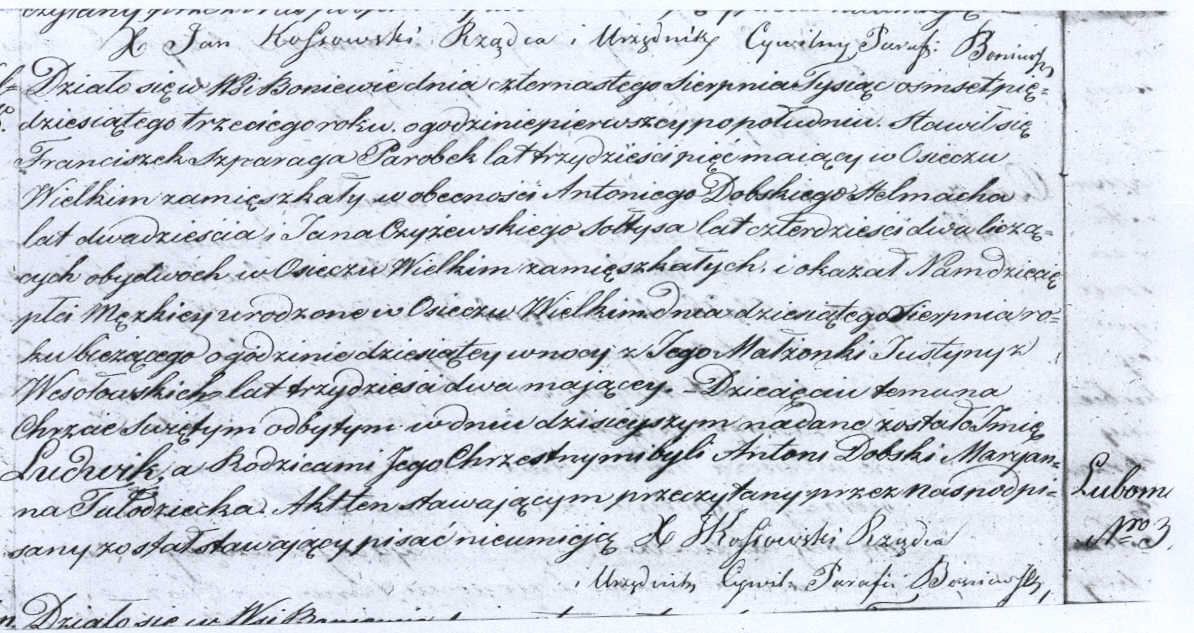 X Jan Kossowski Rządca i Urzędnik Cywilny Parafi Boniewskiej
Działo się w Wsi Boniewie dnia czternastego Sierpnia Tysiąc osmset pię=
dziesiątego trzeciego roku, o godzinie pierwszey po południu. Stawił się
Franciszek Szparaga Parobek lat trzydzieści pięć maiący w Osieczu
Wielkim zamięszkały w obecności Antoniego Dobskiego Stelmacha
lat dwadzieścia i Jana Czyżewskiego Sołtysa lat czterdzieści dwa liczą=
cych obydwoch w Osieczu Wielkim zamięszkałych, i okazał Nam dziecię
płci Męzkiey urodzone w Osieczu Wielkim dnia dziesiątego Sierpnia ro=
ku bieżącego o godzinie dziesiątey w nocy z Jego Małżonki Justyny z
Wesołowskich lat trzydzieści dwa maiącey. – Dziecięciu temu na
Chrzcie Swiętym odbytym w dniu dzisieyszym nadane zostało Imię
Ludwik, a Rodzicami Jego Chrzestnymi byli Antoni Dobski Maryan=
na Tułodziecka. Akt ten stawaiącym przeczytany przez nas podpi=
sany został stawaiący pisać nieumieją X JKossowski Rządca
i Urzędnik Cywil: Parafii Boniewskiej
Lubom
Nro 3.
Działo się w Wsi Boniewie